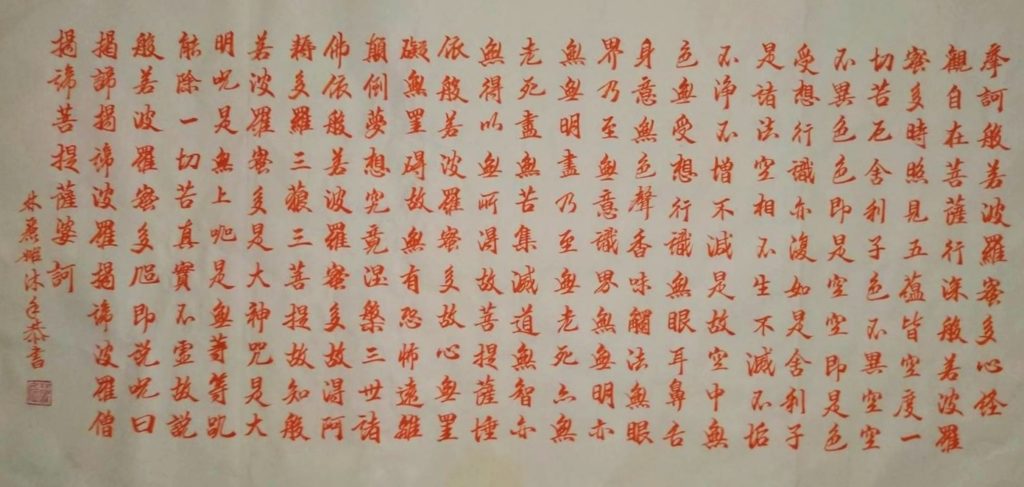 摩訶般若波羅蜜多心経
觀自在菩薩行深般若波羅
蜜多時照見五蘊皆空度一
切苦厄舍利子色不異空空
不異色色即是空空即是色
受想行識亦復如是舍利子
是諸法空相不生不滅不垢
不淨不增不減是故空中無
色無受想行識無眼耳鼻舌
身意無色聲香味觸法無眼
界乃至無意識界無無明亦
無無明盡乃至無老死亦無
老死盡無苦集滅道無智亦
無得以無所得故菩提薩埵
依般若波羅蜜多故心無罣
礙無罣碍故無有恐怖遠離
顛倒夢想究竟涅槃三世諸
佛依般若波羅蜜多故得阿
耨多羅三藐三菩提故知般
若波羅蜜多是大神咒是大
明呪是無上呪是無等等呪
能除一切苦真實不虛故說
般若波羅蜜多呪即說呪曰
揭諦揭諦波羅揭諦波羅僧
揭諦菩提薩婆訶
林麗姬沐手恭書